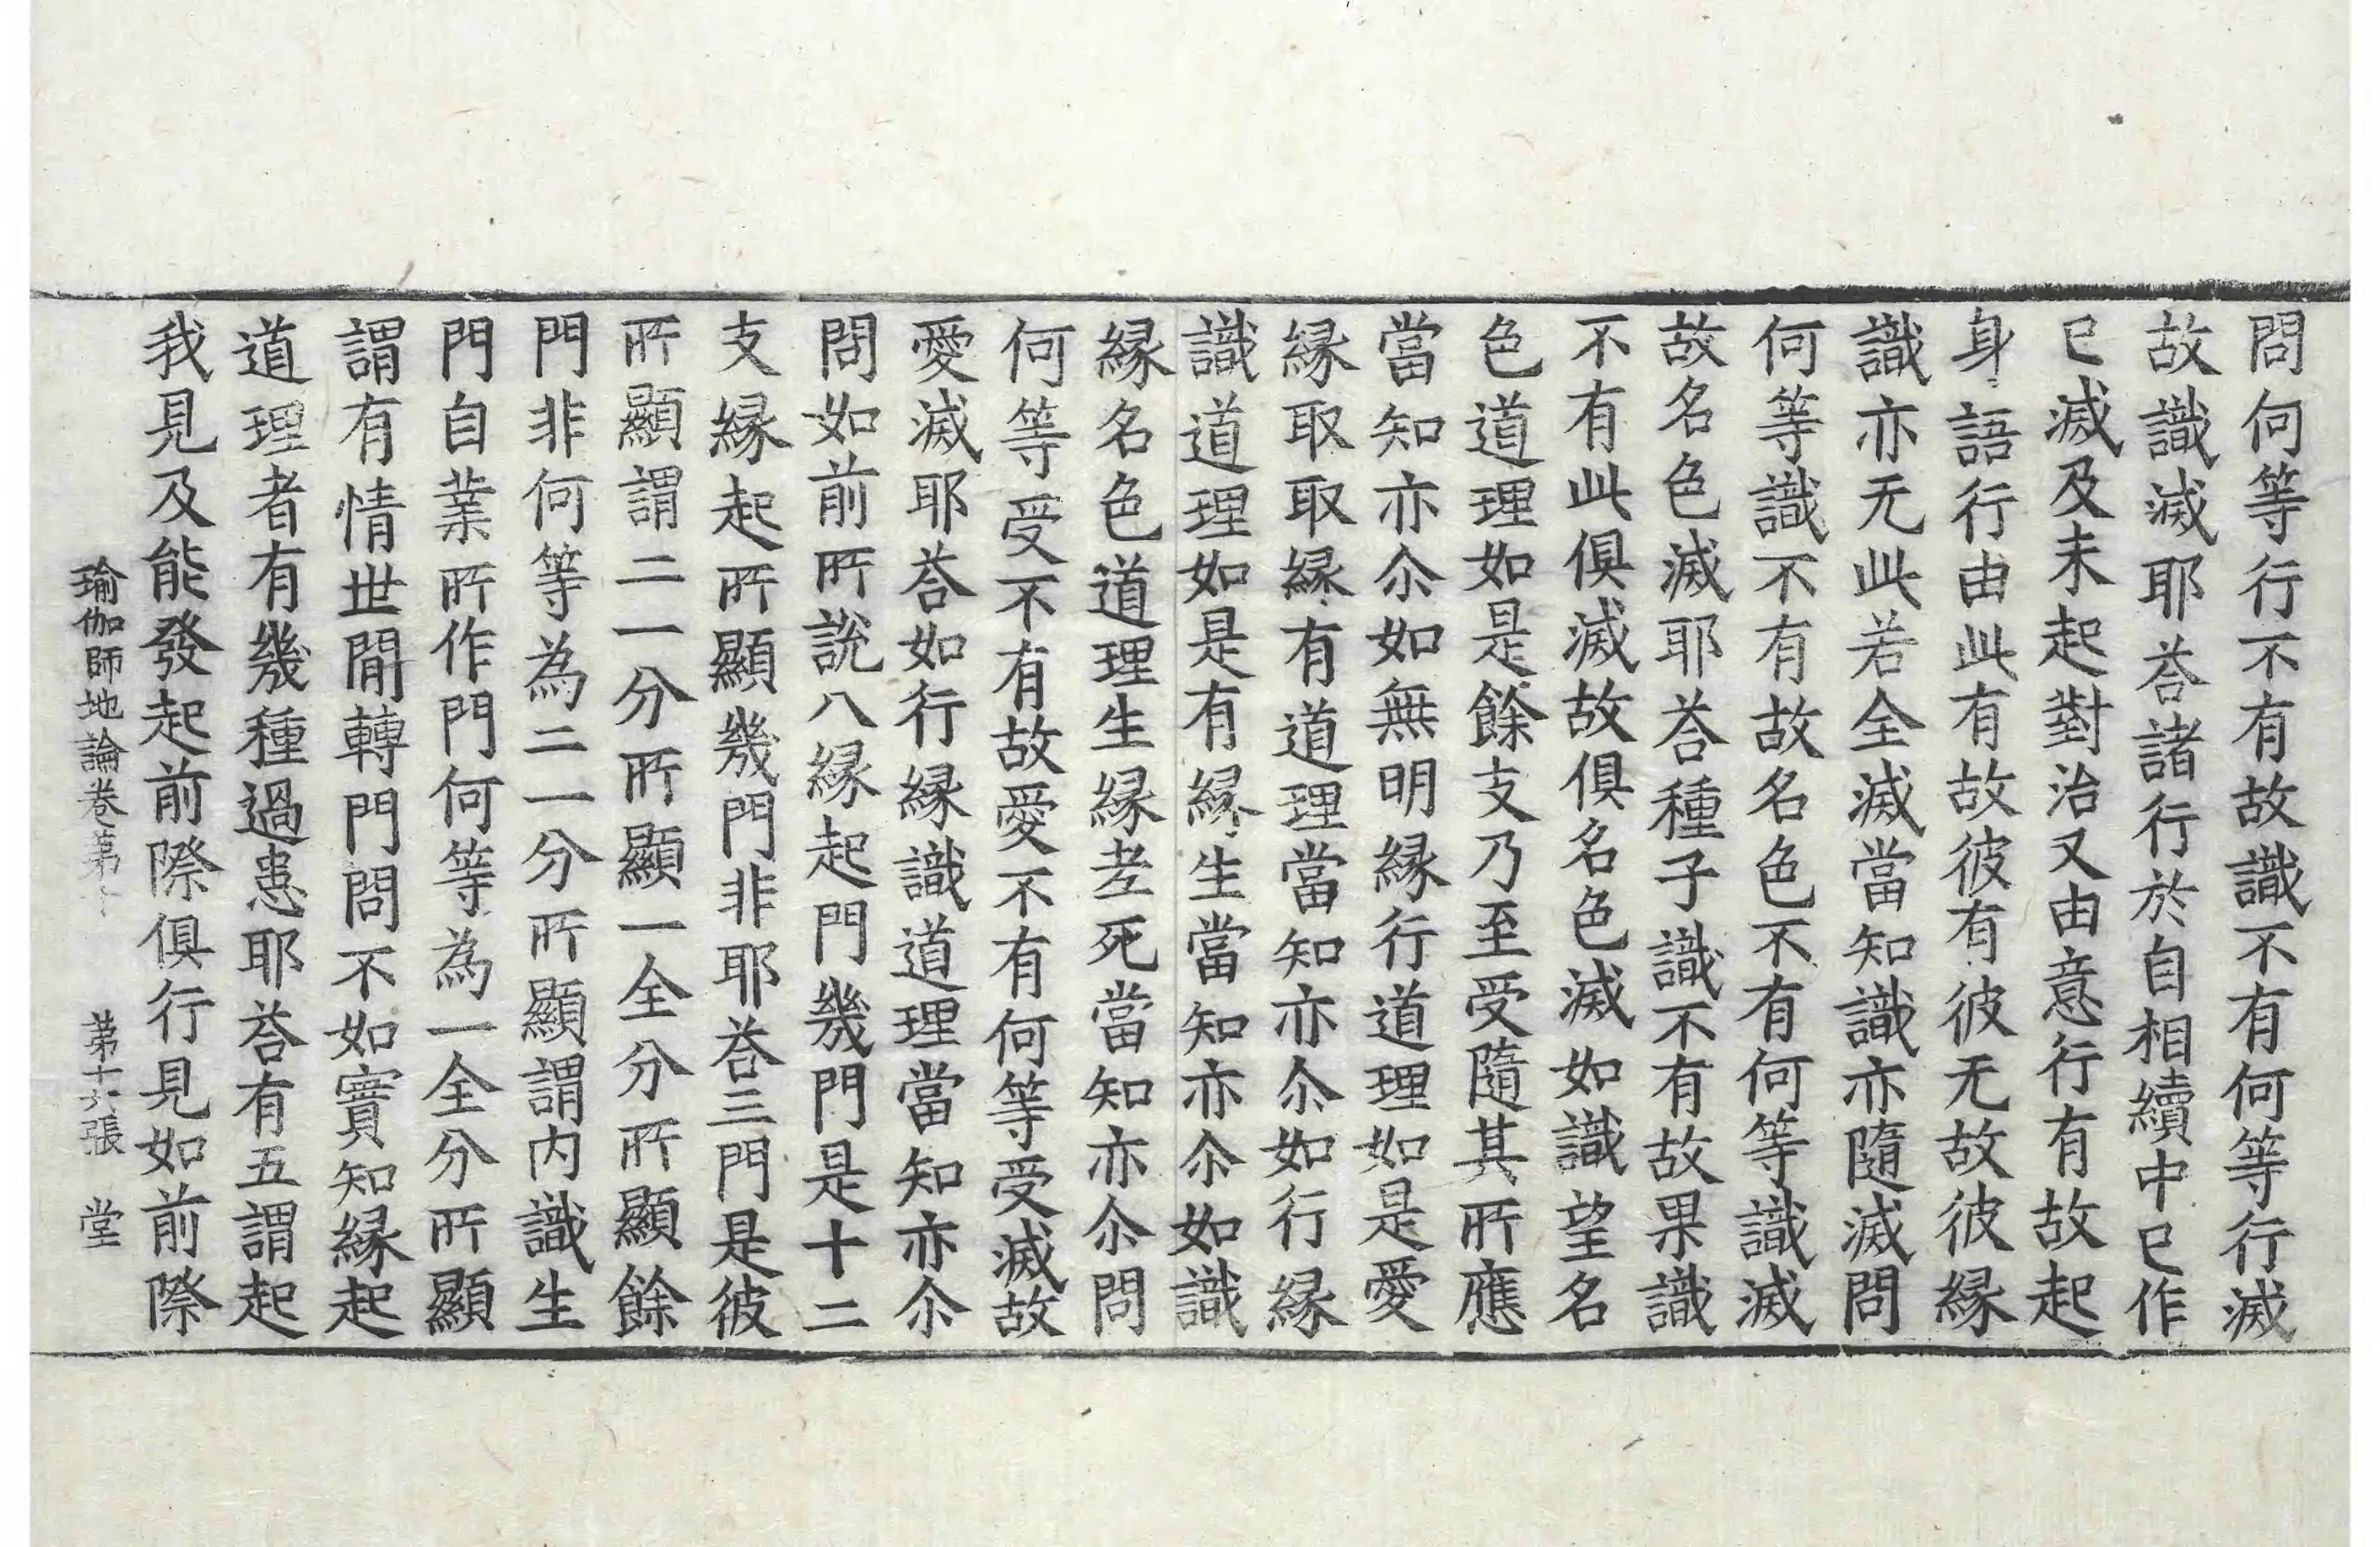 問何等行不有故識不有何等行滅
故識滅耶荅諸行於自相續中已作
已滅及未起對治又由意行有故起
身語行由此有故彼有彼无故彼縁
識亦无此若全滅當知識亦隨滅問
何等識不有故名色不有何等識滅
故名色滅耶荅種子識不有故果識
不有此俱滅故俱名色滅如識望名
色道理如是餘支乃至受隨其所應
當知亦尒如無明縁行道理如是愛
縁取取縁有道理當知亦尒如行縁
識道理如是有縁生當知亦尒如識
縁名色道理生縁老死當知亦尒問
何等受不有故愛不有何等受滅故
愛滅耶荅如行縁識道理當知亦尒
問如前所說八縁起門幾門是十二
支縁起所顯幾門非耶荅三門是彼
所顯謂二一分所顯一全分所顯餘
門非何等為二一分所顯謂内識生
門自業所作門何等為一全分所顯
謂有情世間轉門問不如實知縁起
道理者有幾種過患耶荅有五謂起
我見及能發起前際俱行見如前際
瑜伽師地論卷第十 第十六張 堂